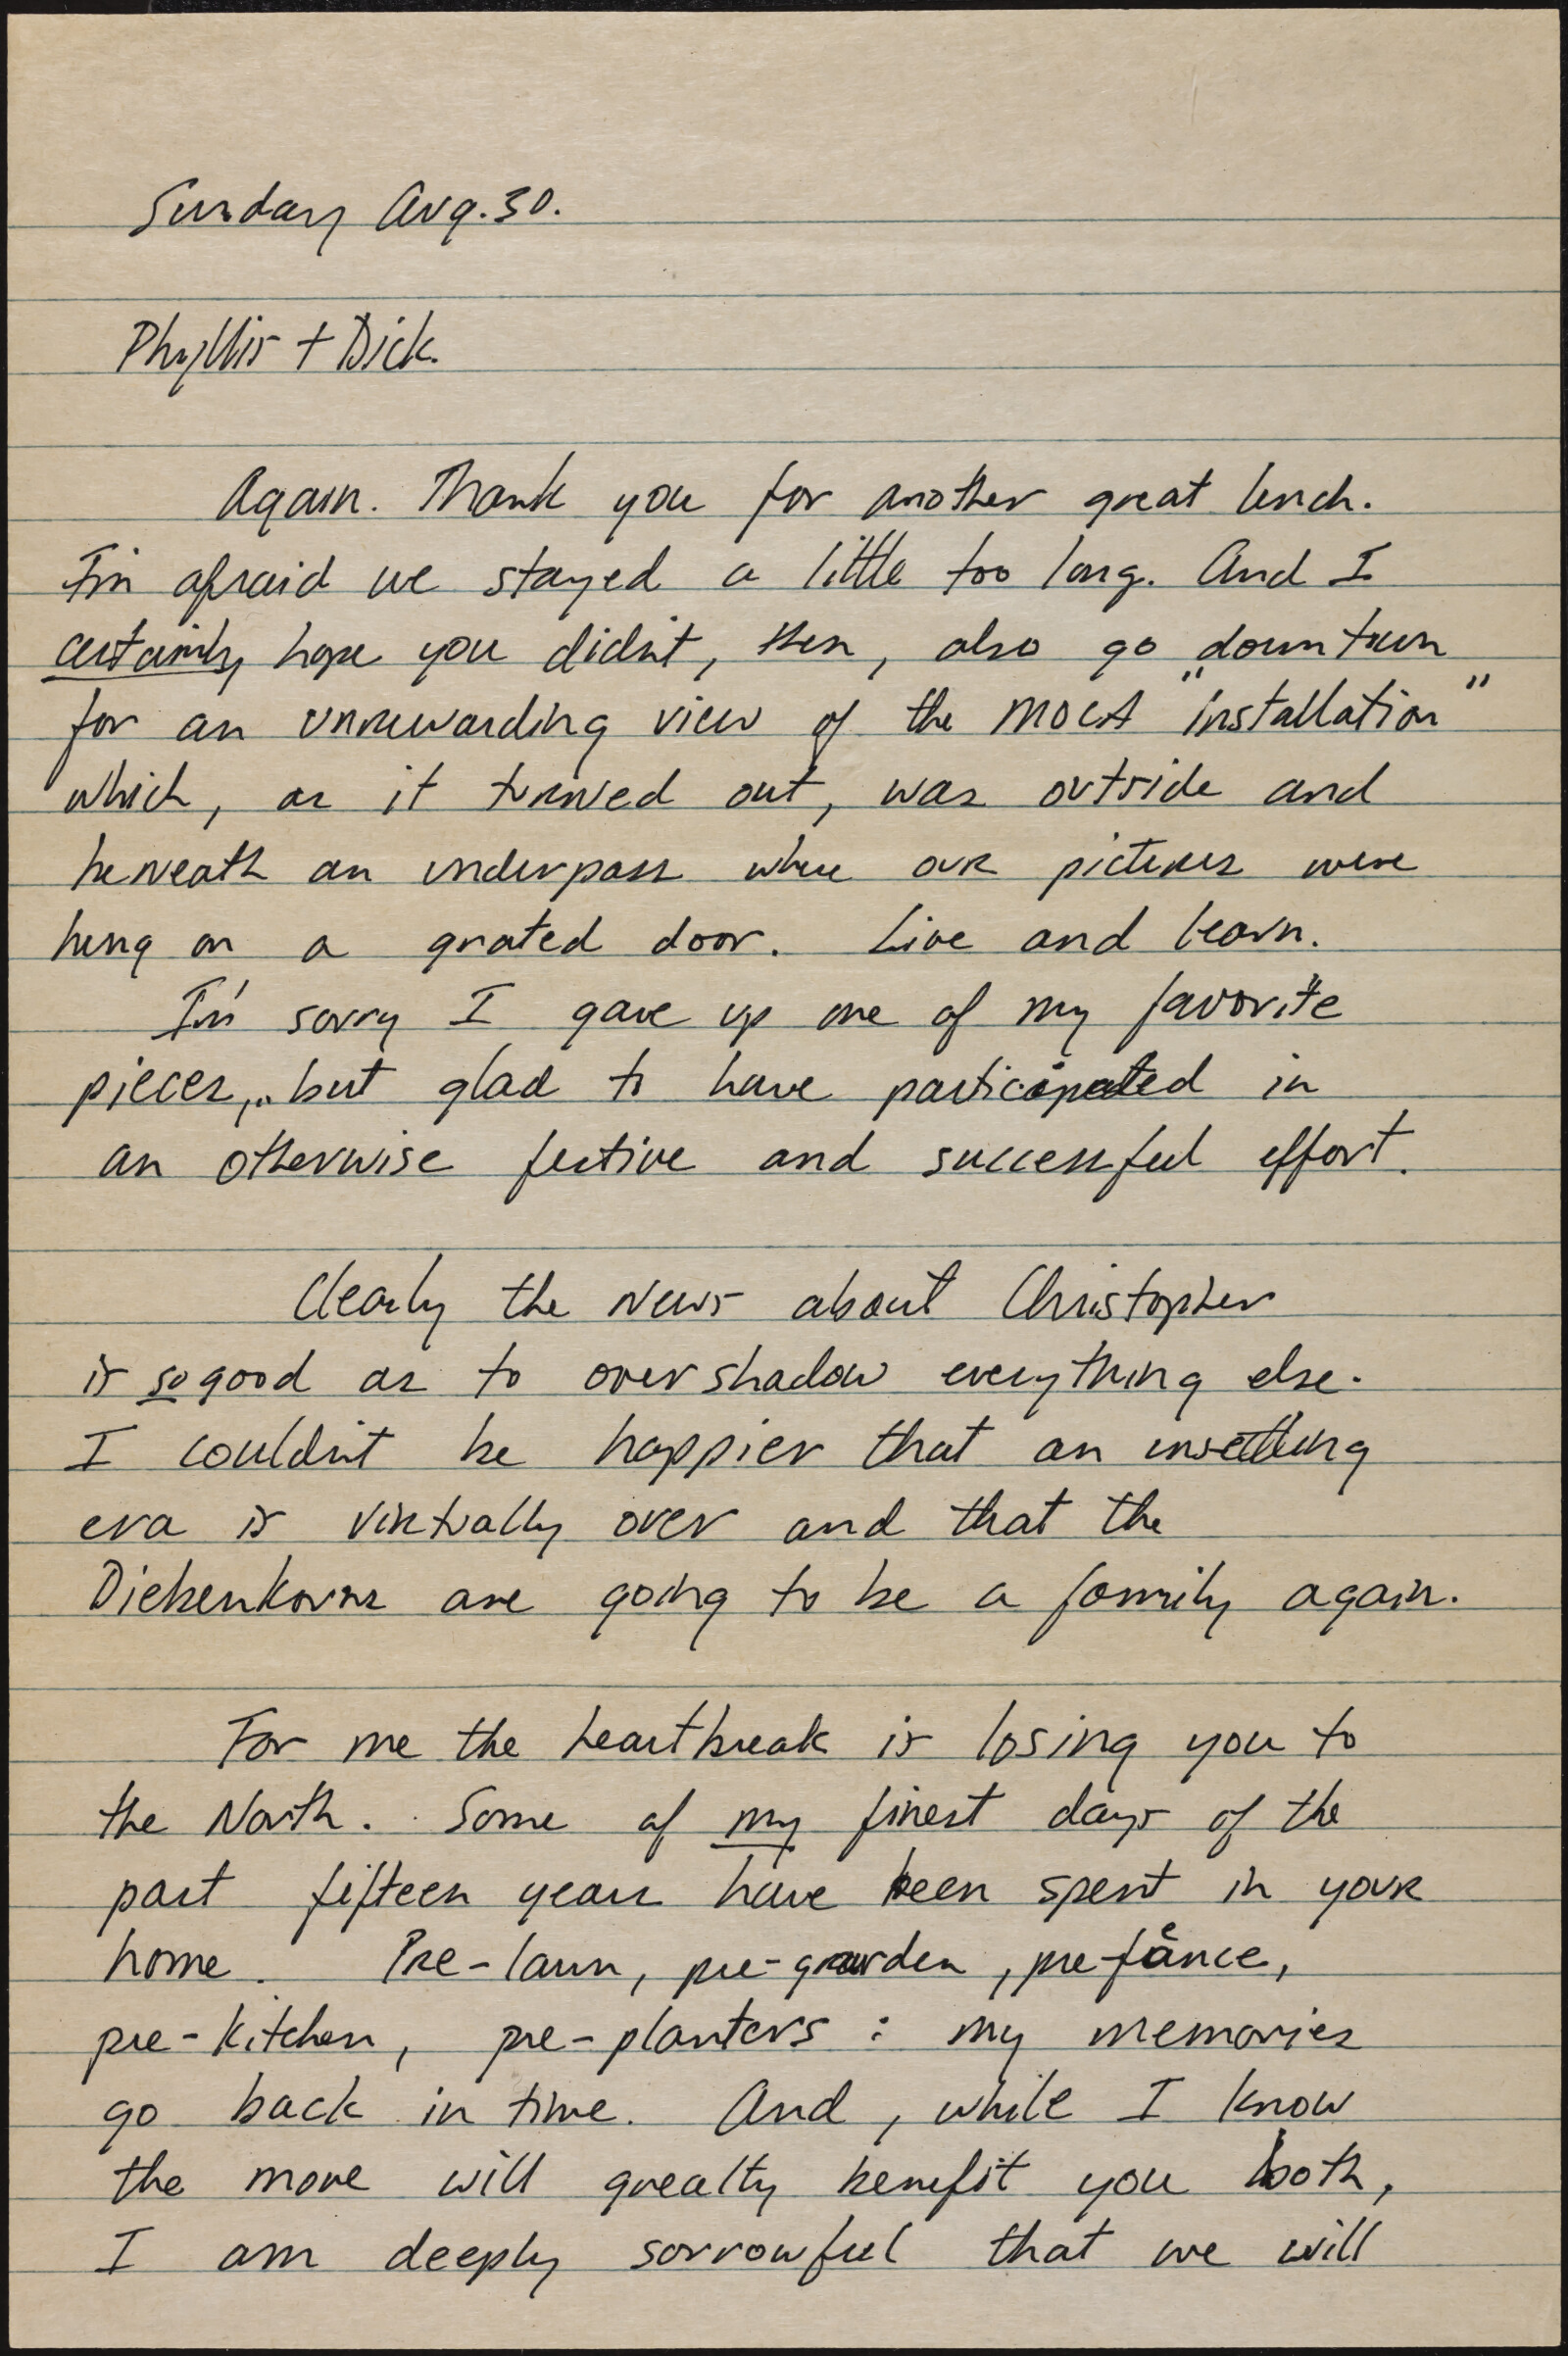 Sunday Aug. 30.
Phyllis + Dick.
Again. Thank you for another great lunch.
I'm afraid we stayed a little too long. And I
certainly hope you didn't, then, also go downtown
for an unrewarding view of the MOCA "installation"
which, as it turned out, was outside and
beneath an underpass where our pictures were
hung on a grated door. Live and learn.
I'm sorry I gave up one of my favorite
pieces,.. but glad to have participated in
an otherwise festive and successful effort.
Clearly the news about Christopher
is so good as to overshadow everything else.
I couldn't be happier that an unsettling
era is virtually over and that the
Diebenkorns are going to be a family again.
For me the heartbreak is losing you to
the North. Some of my finest days of the
past fifteen years have been spent in your
home. Pre-lawn, pre-garden, pre-fence,
pre-kitchen, pre-planters : my memories
go back in time. And, while I know
the move will grealty benefit you both,
I am deeply sorrowful that we will